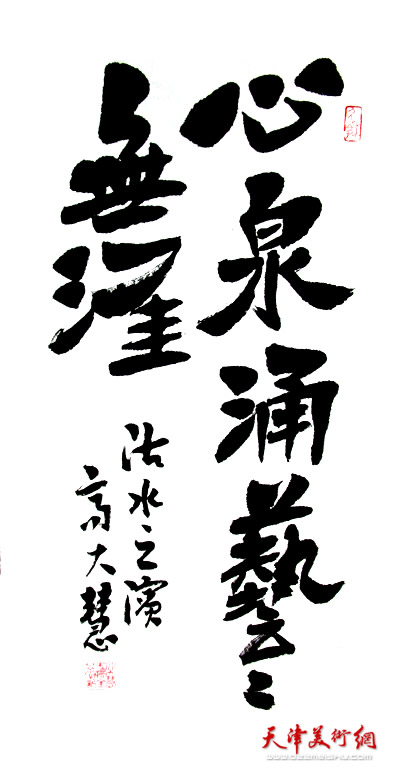 心泉涌藝〻
無涯
沽水之濱
高大慧
天津美術網